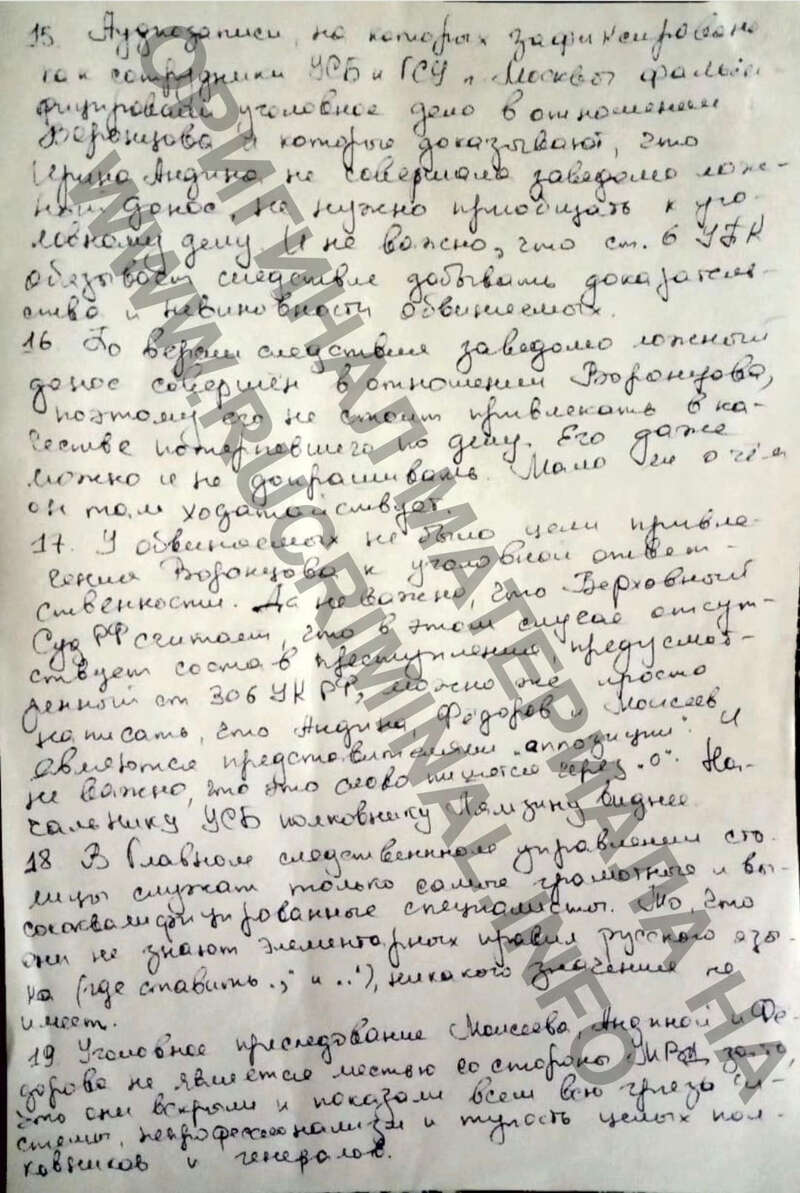 15. Аудиозаписи, на которых зафиксировано
как сотрудники УСБ и ГСУ г. Москвы фальси-
фицировали уголовное дело в отношении
Воронцова и которые доказывают, что
Ирина Андина не совершала заведомо лож-
ный донос, не нужно приобщать к уго-
ловному делу. И не важно, что ст. 6 УПК
обязывает следствие добывать доказатель-
ства и невиновности обвиняемых.
16 По версии следствия заведомо ложный
донос совершен в отношении Воронцова,
поэтому его не стоит привлекать в ка-
честве потерпевшего по делу. Его даже
можно и не допрашивать. Мало ли о чём
он там ходатайствует.
17. У обвиняемых не было цели привле-
чения Воронцова к уголовной ответ-
ственности. Да неважно, что Верховный
Суд РФ считает, что в этом случае отсут-
ствует состав преступления, предусмот-
ренный ст 306 УК РФ, можно же просто
написать, что Андина, Федоров и Моисеев
являются представителями "аппозиции". И
не важно, что это слово пишется через "о". На-
чальнику УСБ полковнику Лямзину виднее.
18 В Главном следственном управлении сто-
лицы служат только самые грамотные и вы-
сококвалифицированные специалисты. То, что
они не знают элементарных правил русского язы-
ка (где ставить "," и "."), никакого значения не
имеет.
19 Уголовное преследование Моисеева, Андиной и Фе-
дорова не является местью со стороны за то,
что они вскрыли и показали всем всю грязь си-
стемы, непрофессионализм и тупость целых пол-
ковников и генералов.
ОРИГИНАЛ МАТЕРИАЛА НА
WWW.RUCRIMINAL.INFO